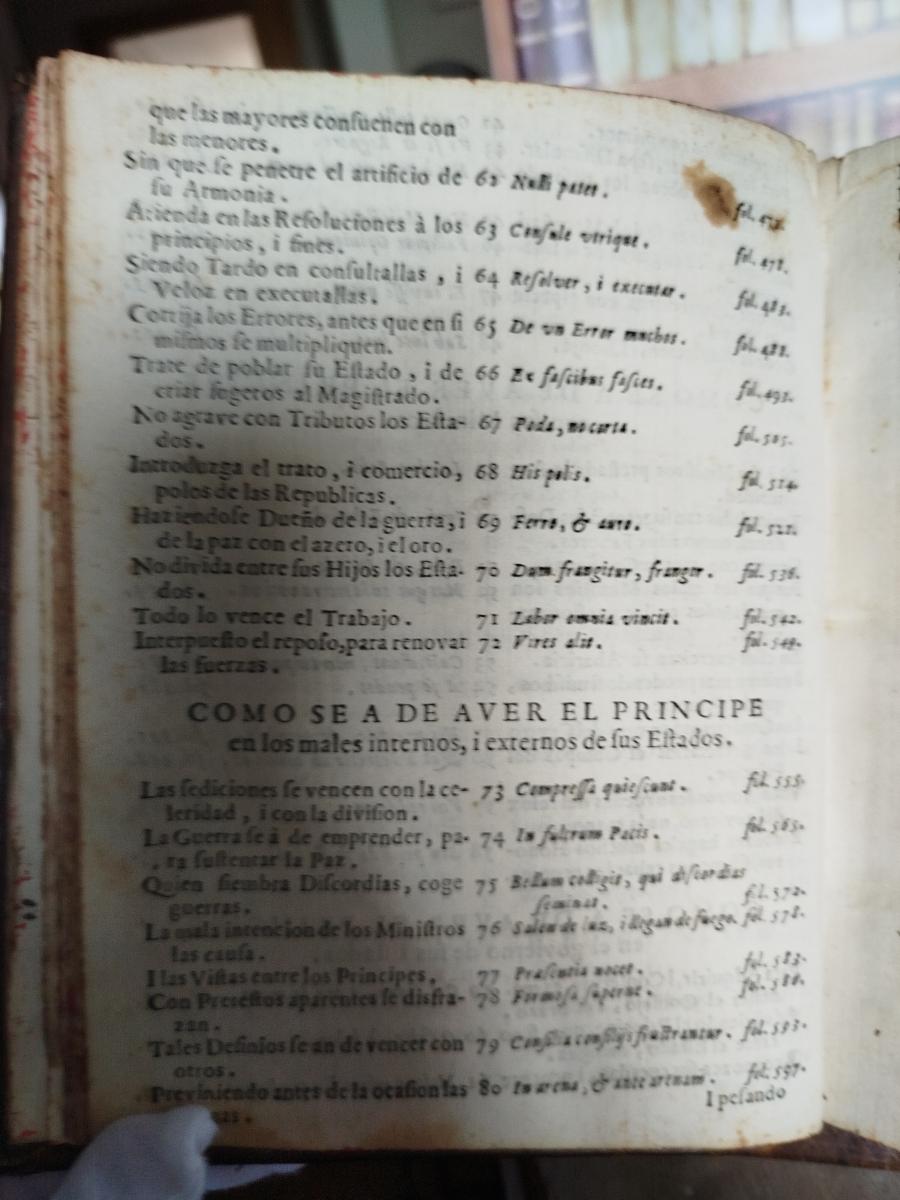 que las mayores conſuenen con
las menores.
Sin que ſe penetre el artificio de 62 Nulli patet. fol. 472.
ſu Armonia.
Atienda en las Reſoluciones à los 63 Conſule vtrique. fol. 478.
principios, i fines.
Siendo Tardo en conſultallas, i 64 Reſolver, i executar. fol. 483.
Veloz en executallas.
Corrija los Errores, antes que en ſi 65 De vn Error muchos. fol. 488.
miſmos ſe multipliquen.
Trate de poblar ſu Eſtado, i de 66 Ex faſcibus faſces. fol. 492.
criar ſugetos al Magiſtrado.
No agrave con Tributos los Eſta- 67 Poda, no corta. fol. 505.
dos.
Introduzga el trato, i comercio, 68 His polis. fol. 514.
polos de las Republicas.
Haziendoſe Dueño de la guerra, i 69 Ferro, & auro. fol. 521.
de la paz con el azero, i el oro.
No divida entre ſus Hijos los Eſta- 70 Dum frangitur, frangor. fol. 536.
dos.
Todo lo vence el Trabajo. 71 Labor omnia vincit. fol. 542.
Interpueſto el repoſo, para renovar 72 Vires alit. fol. 549.
las fuerzas.
COMO SE A DE AVER EL PRINCIPE
en los males internos, i externos de ſus Eſtados.
Las ſediciones ſe vencen con la ce- 73 Compreſſa quieſcunt. fol. 555.
leridad, i con la diviſion.
La Guerra ſe à de emprender, pa- 74 In fulcrum Pacis. fol. 565.
ra ſuſtentar la Paz.
Quien ſiembra Diſcordias, coge 75 Bellum colligit, qui diſcordias
guerras. ſeminat. fol. 572.
La mala intencion de los Miniſtros 76 Salen de luz, i llegan de fuego. fol. 578.
las cauſa.
I las Viſtas entre los Principes. 77 Præſentia nocet. fol. 583.
Con Preteſtos aparentes ſe disfra- 78 Formoſa ſuperne. fol.
zan.
Tales Deſinios ſe an de vencer con 79 Conſilia conſiliis fruſtrantur. fol. 593.
otros.
Previniendo antes de la ocaſion las 80 In arena, & ante arenam. fol. 597.
I peſando